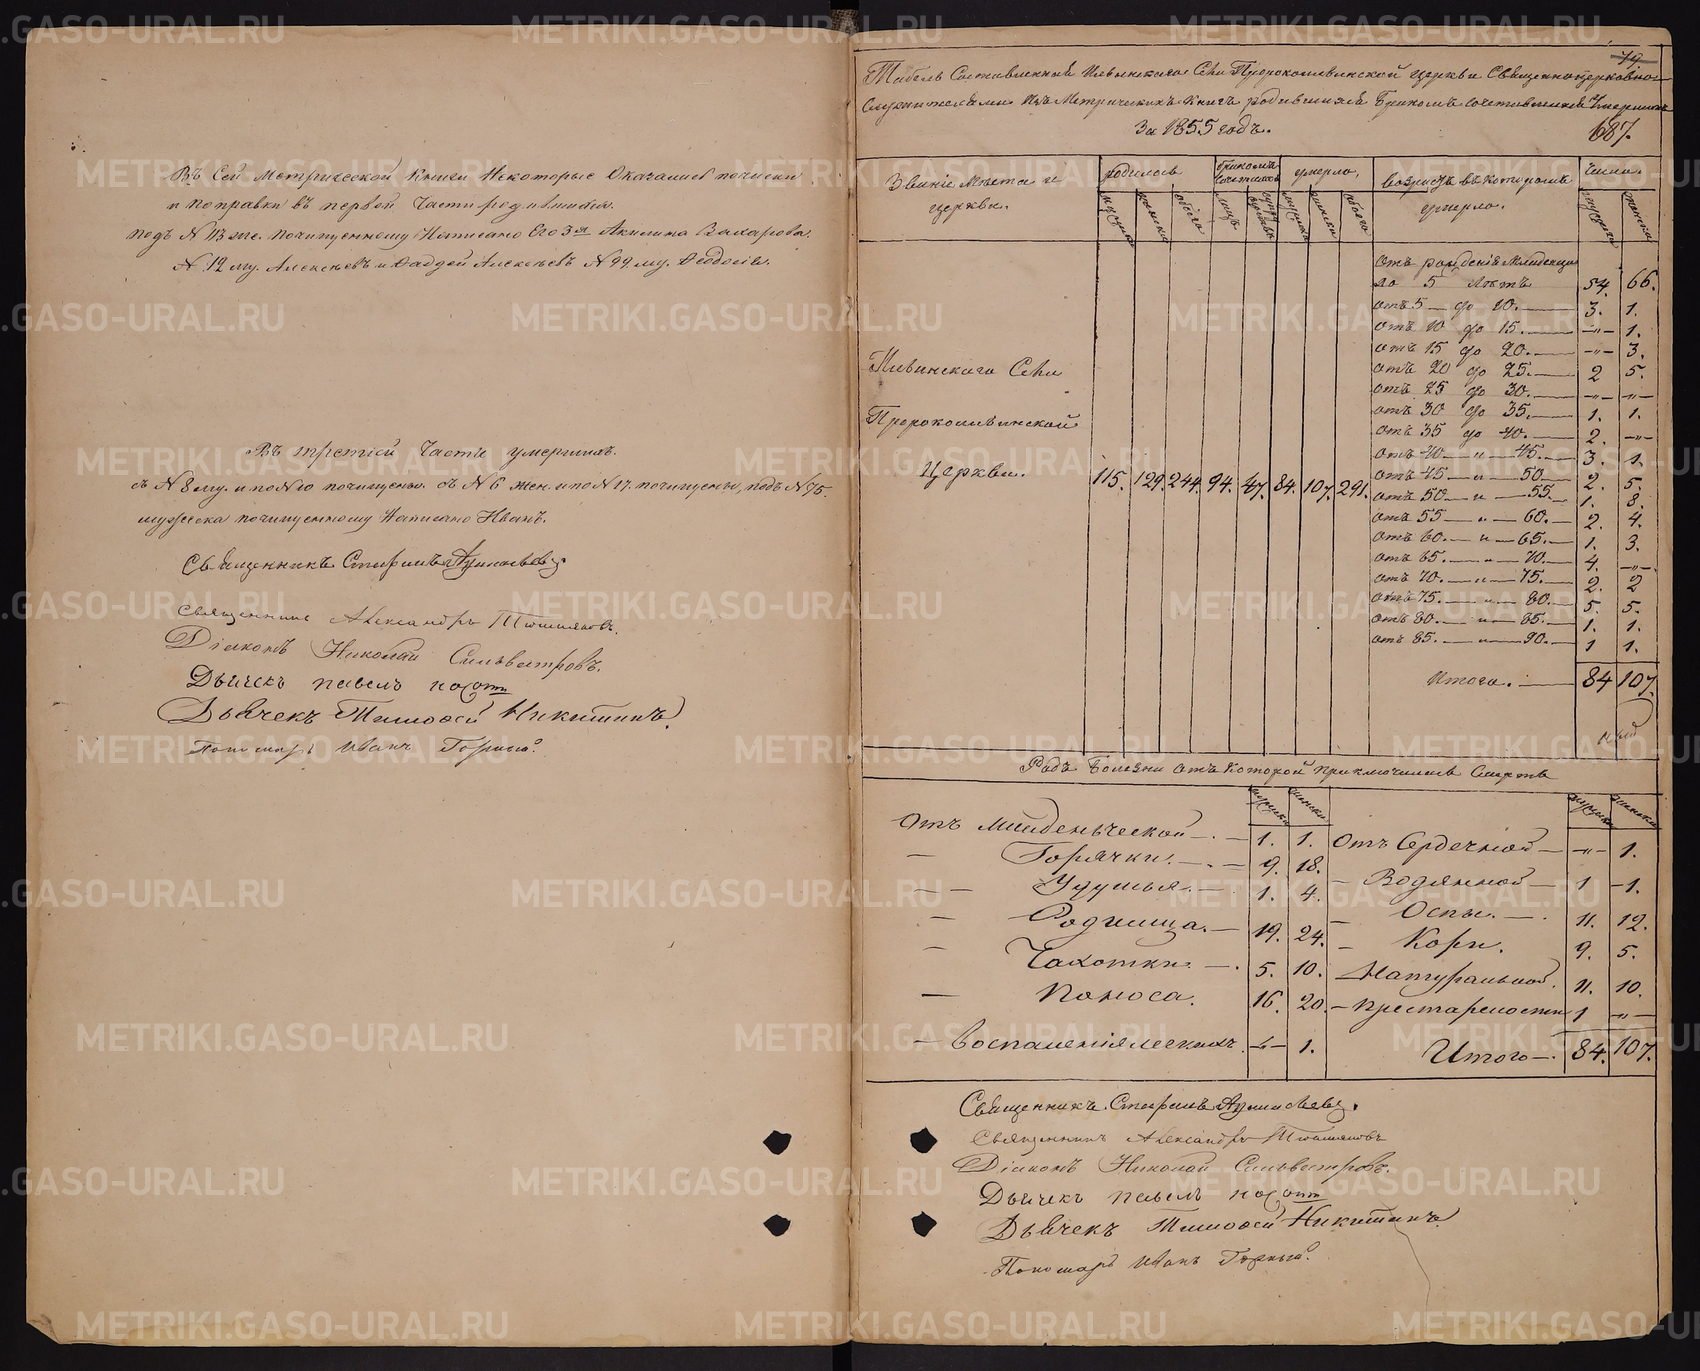 Въ Сей Метрической Книги Некоторые Оказались почистки
и поправки въ первой Части родившихся.
подъ № 113 же. почищенному Написано Его 3я Акилина Захарова.
№ 12 му. Алексѣевъ и Фаддей Алексѣевъ № 99 му. Феодосiй.
Въ третiей Части умершихъ.
съ № 8 му. и по № 10 почищены. съ № 6 жен. и по № 17. почищены, подъ № 75
мужеска почищенному Написано Иванъ.
Священникъ Стефанъ
Священникъ Александръ
Дiаконъ Николай Сильвестровъ.
Дьячекъ павелъ
Дьячекъ Тимофей Никитинъ.
Пономарь Иванъ Горный.
79
Табель Составленный Пророкоильинской церкви Священноцерковно-
служителями Изъ Метрическихъ Книгъ родившихся Бракомъ сочетавшихся Умершихъ
За 1855 годъ.
687.
Званiе Мѣста и церкви.
родилось
бракомъ сочеталось
умерло,
возрастъ въ которомъ умерло.
Число.
мужска женска обоего
лицъ супружествъ
мужска женска обоего
мужска женска
Пророкоильинской
Церкви.
115. 129. 244. 94. 47. 84. 107. 291.
отъ рожденiя Младенца
до 5 лѣтъ 54. 66.
отъ 5 — до 10. — 3. 1.
отъ 10 до 15. — -"- 1.
отъ 15 до 20. — -"- 3.
отъ 20 до 25. — 2 5.
отъ 25 до 30. — -"- -"-
отъ 30 до 35. — 1. 1.
отъ 35 до 40. — 2. -"-
отъ 40. — " — 45. — 3. 1.
отъ 45 — " — 50 — 2. 5.
отъ 50 — " — 55. 1. 8.
отъ 55 — " — 60. — 2. 4.
отъ 60. — " — 65. — 1. 3.
отъ 65. — " — 70. — 4. -"-
отъ 70. — " — 75. — 2. 2
отъ 75. — " — 80. — 5. 5.
отъ 80. — " — 85. — 1. 1.
отъ 85. — " — 90. — 1 1.
Итого. — 84 107.
Родъ Болезни отъ Которой приключилась Смерть
мужска женска
мужска женска
Отъ Младенческой — 1. 1.
— Горячки. — 9. 18.
— Удушья — 1. 4.
— Родимца. — 19. 24.
— Чахотки — 5. 10.
— Поноса. 16. 20.
— Воспаленiя легкихъ. -"- 1.
Отъ Сердечной — -"- 1.
— Водянной — 1 1.
— Оспы. — 11. 12.
— Кори. 9. 5.
— Натуральной. 11. 10.
— престарелости 1 -"-
Итого — 84. 107.
Священникъ. Стефанъ
Священникъ Александръ
Дiаконъ Николай Сильвестровъ.
Дьячекъ павелъ
Дьячекъ Тимофей Никитинъ
Пономарь Иванъ Горный.
METRIKI.GASO-URAL.RU